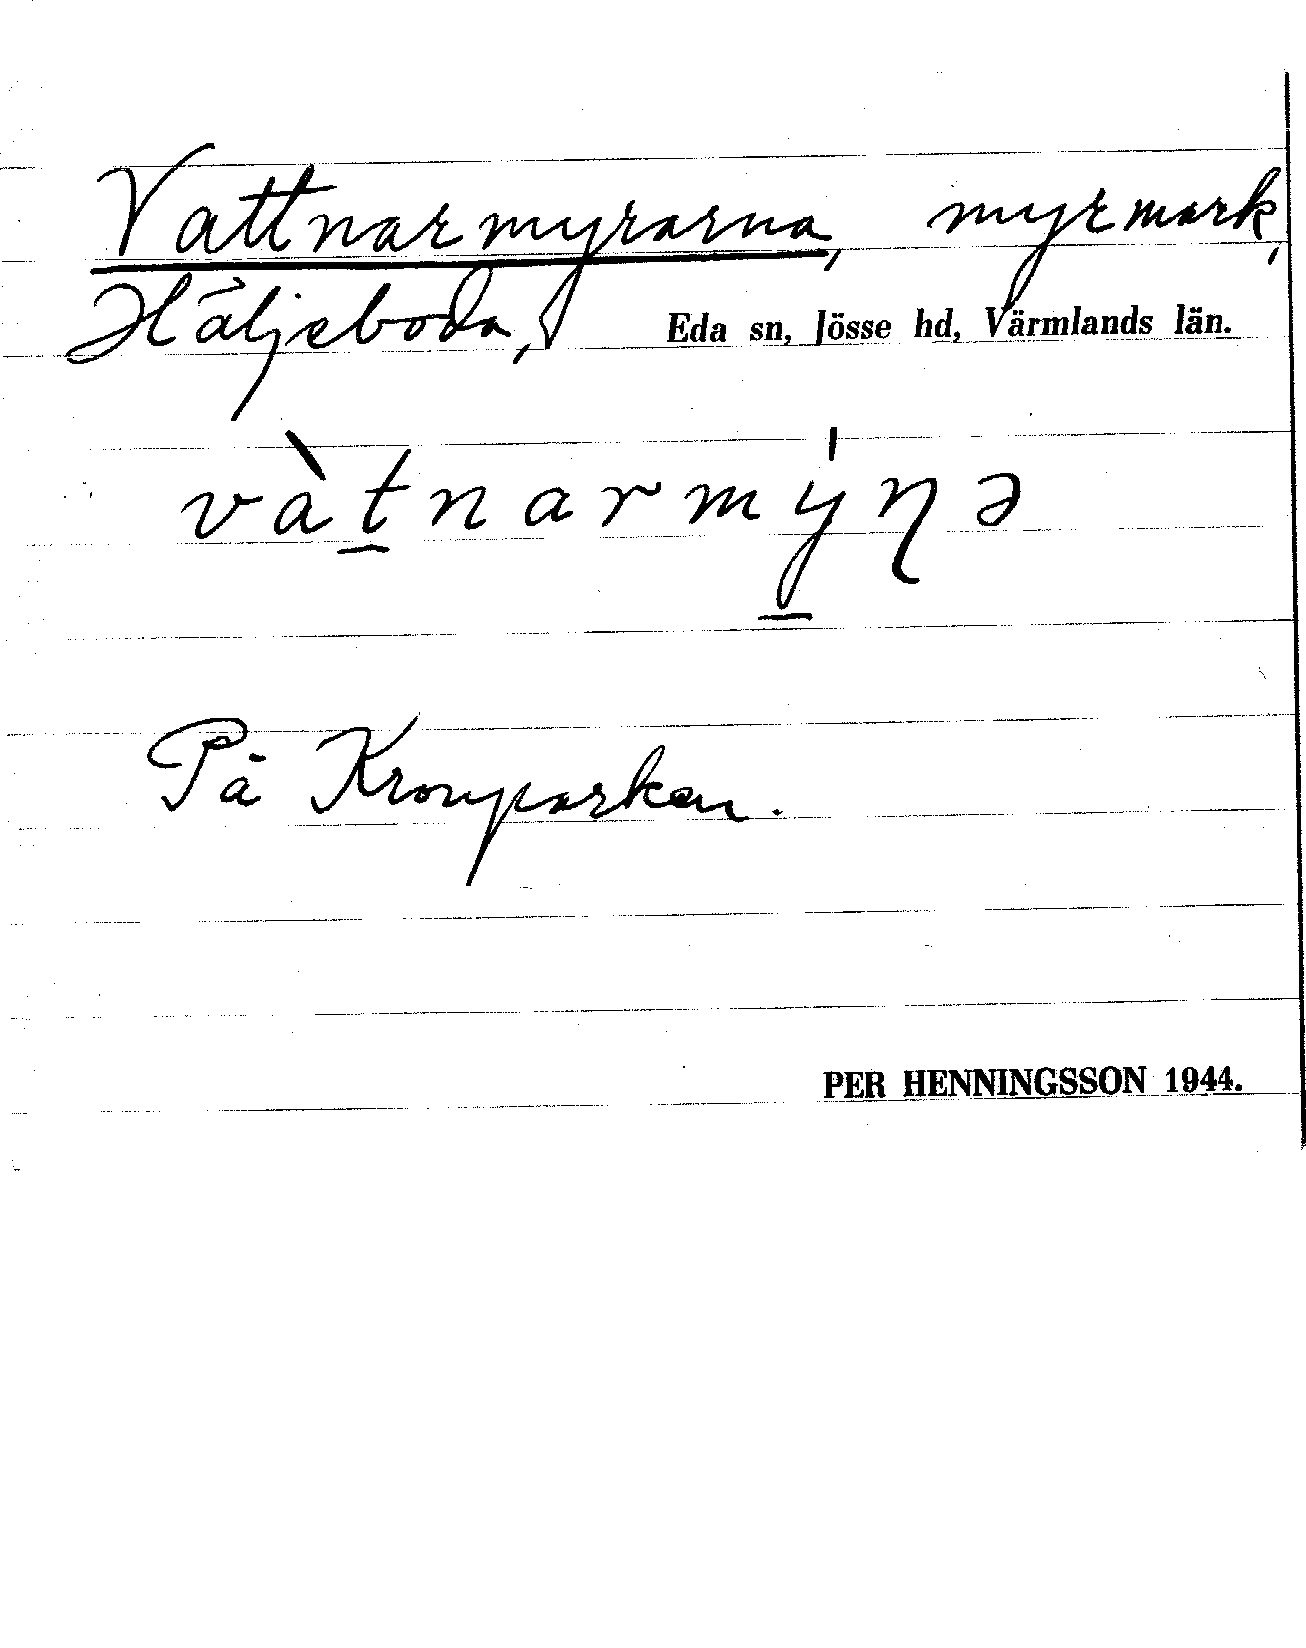 Vattnarmyrarna, myrmark,
Häljeboda, Eda sn, Jösse hd, Värmlands län.
vàt̲narmý̲ɳə
På Kronparken.
PER HENNINGSSON 1944.